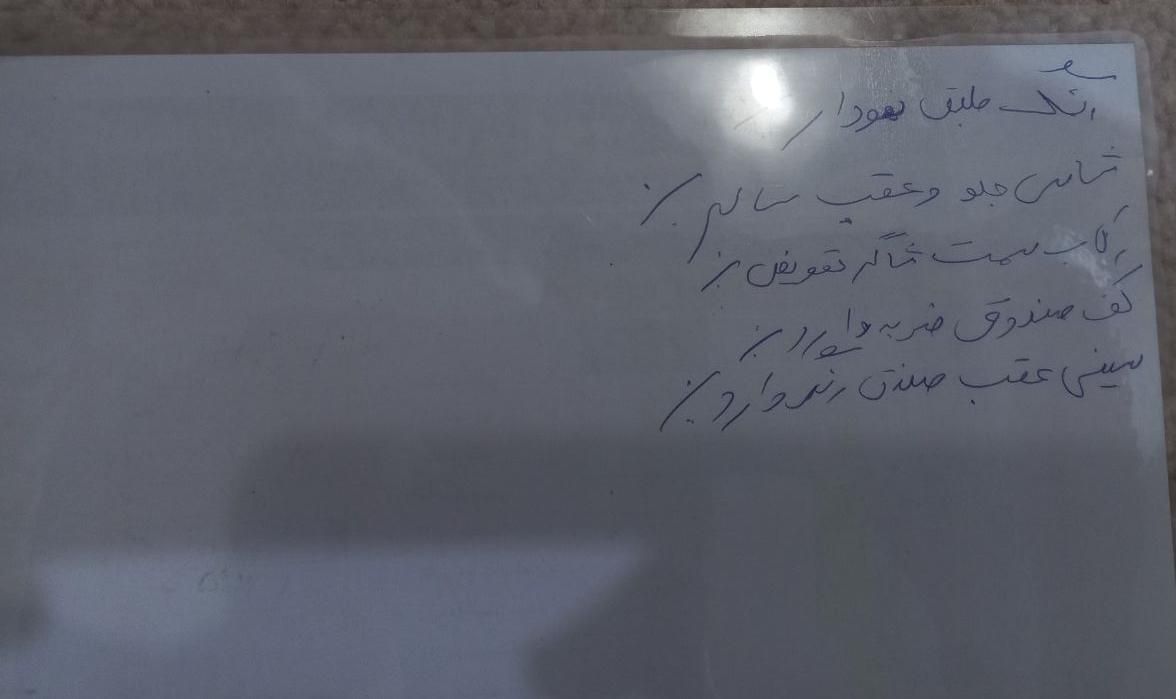 رنگ طبق نمودار
شاسی جلو و عقب سالم
رکاب سمت شاگرد تعویض
کف صندوق ضربه دارد
سینی عقب صندق رنگ دارد